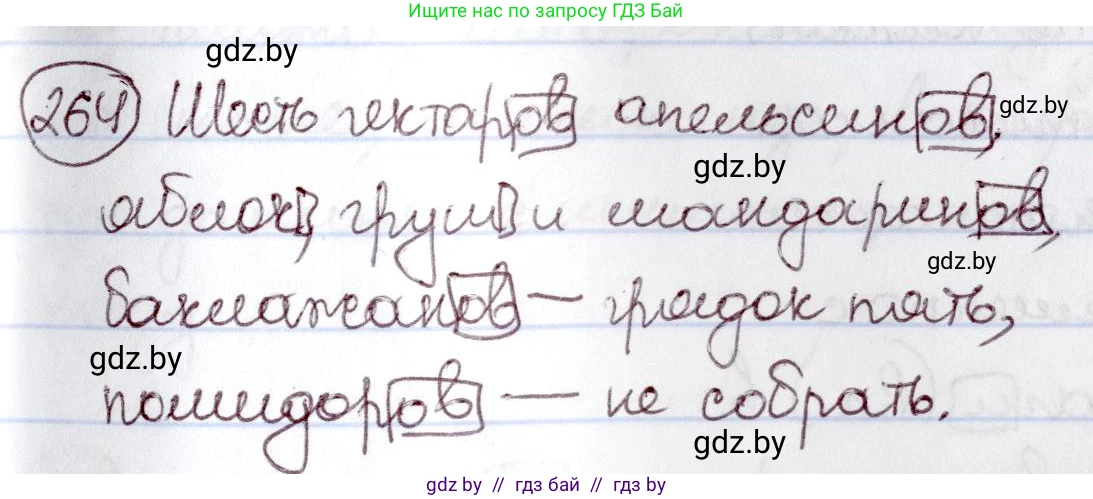 Ищите нас по запросу ГДЗ Бай
gdz.by
264 Шесть гектаров апельсинов, gdz.by
gdz.by
яблок, груш и мандаринов,
gdz.by
баклажанов — грядок пять,
gdz.by
помидоров — не собрать.
gdz.by
gdz.by // гдз бай // гдз by